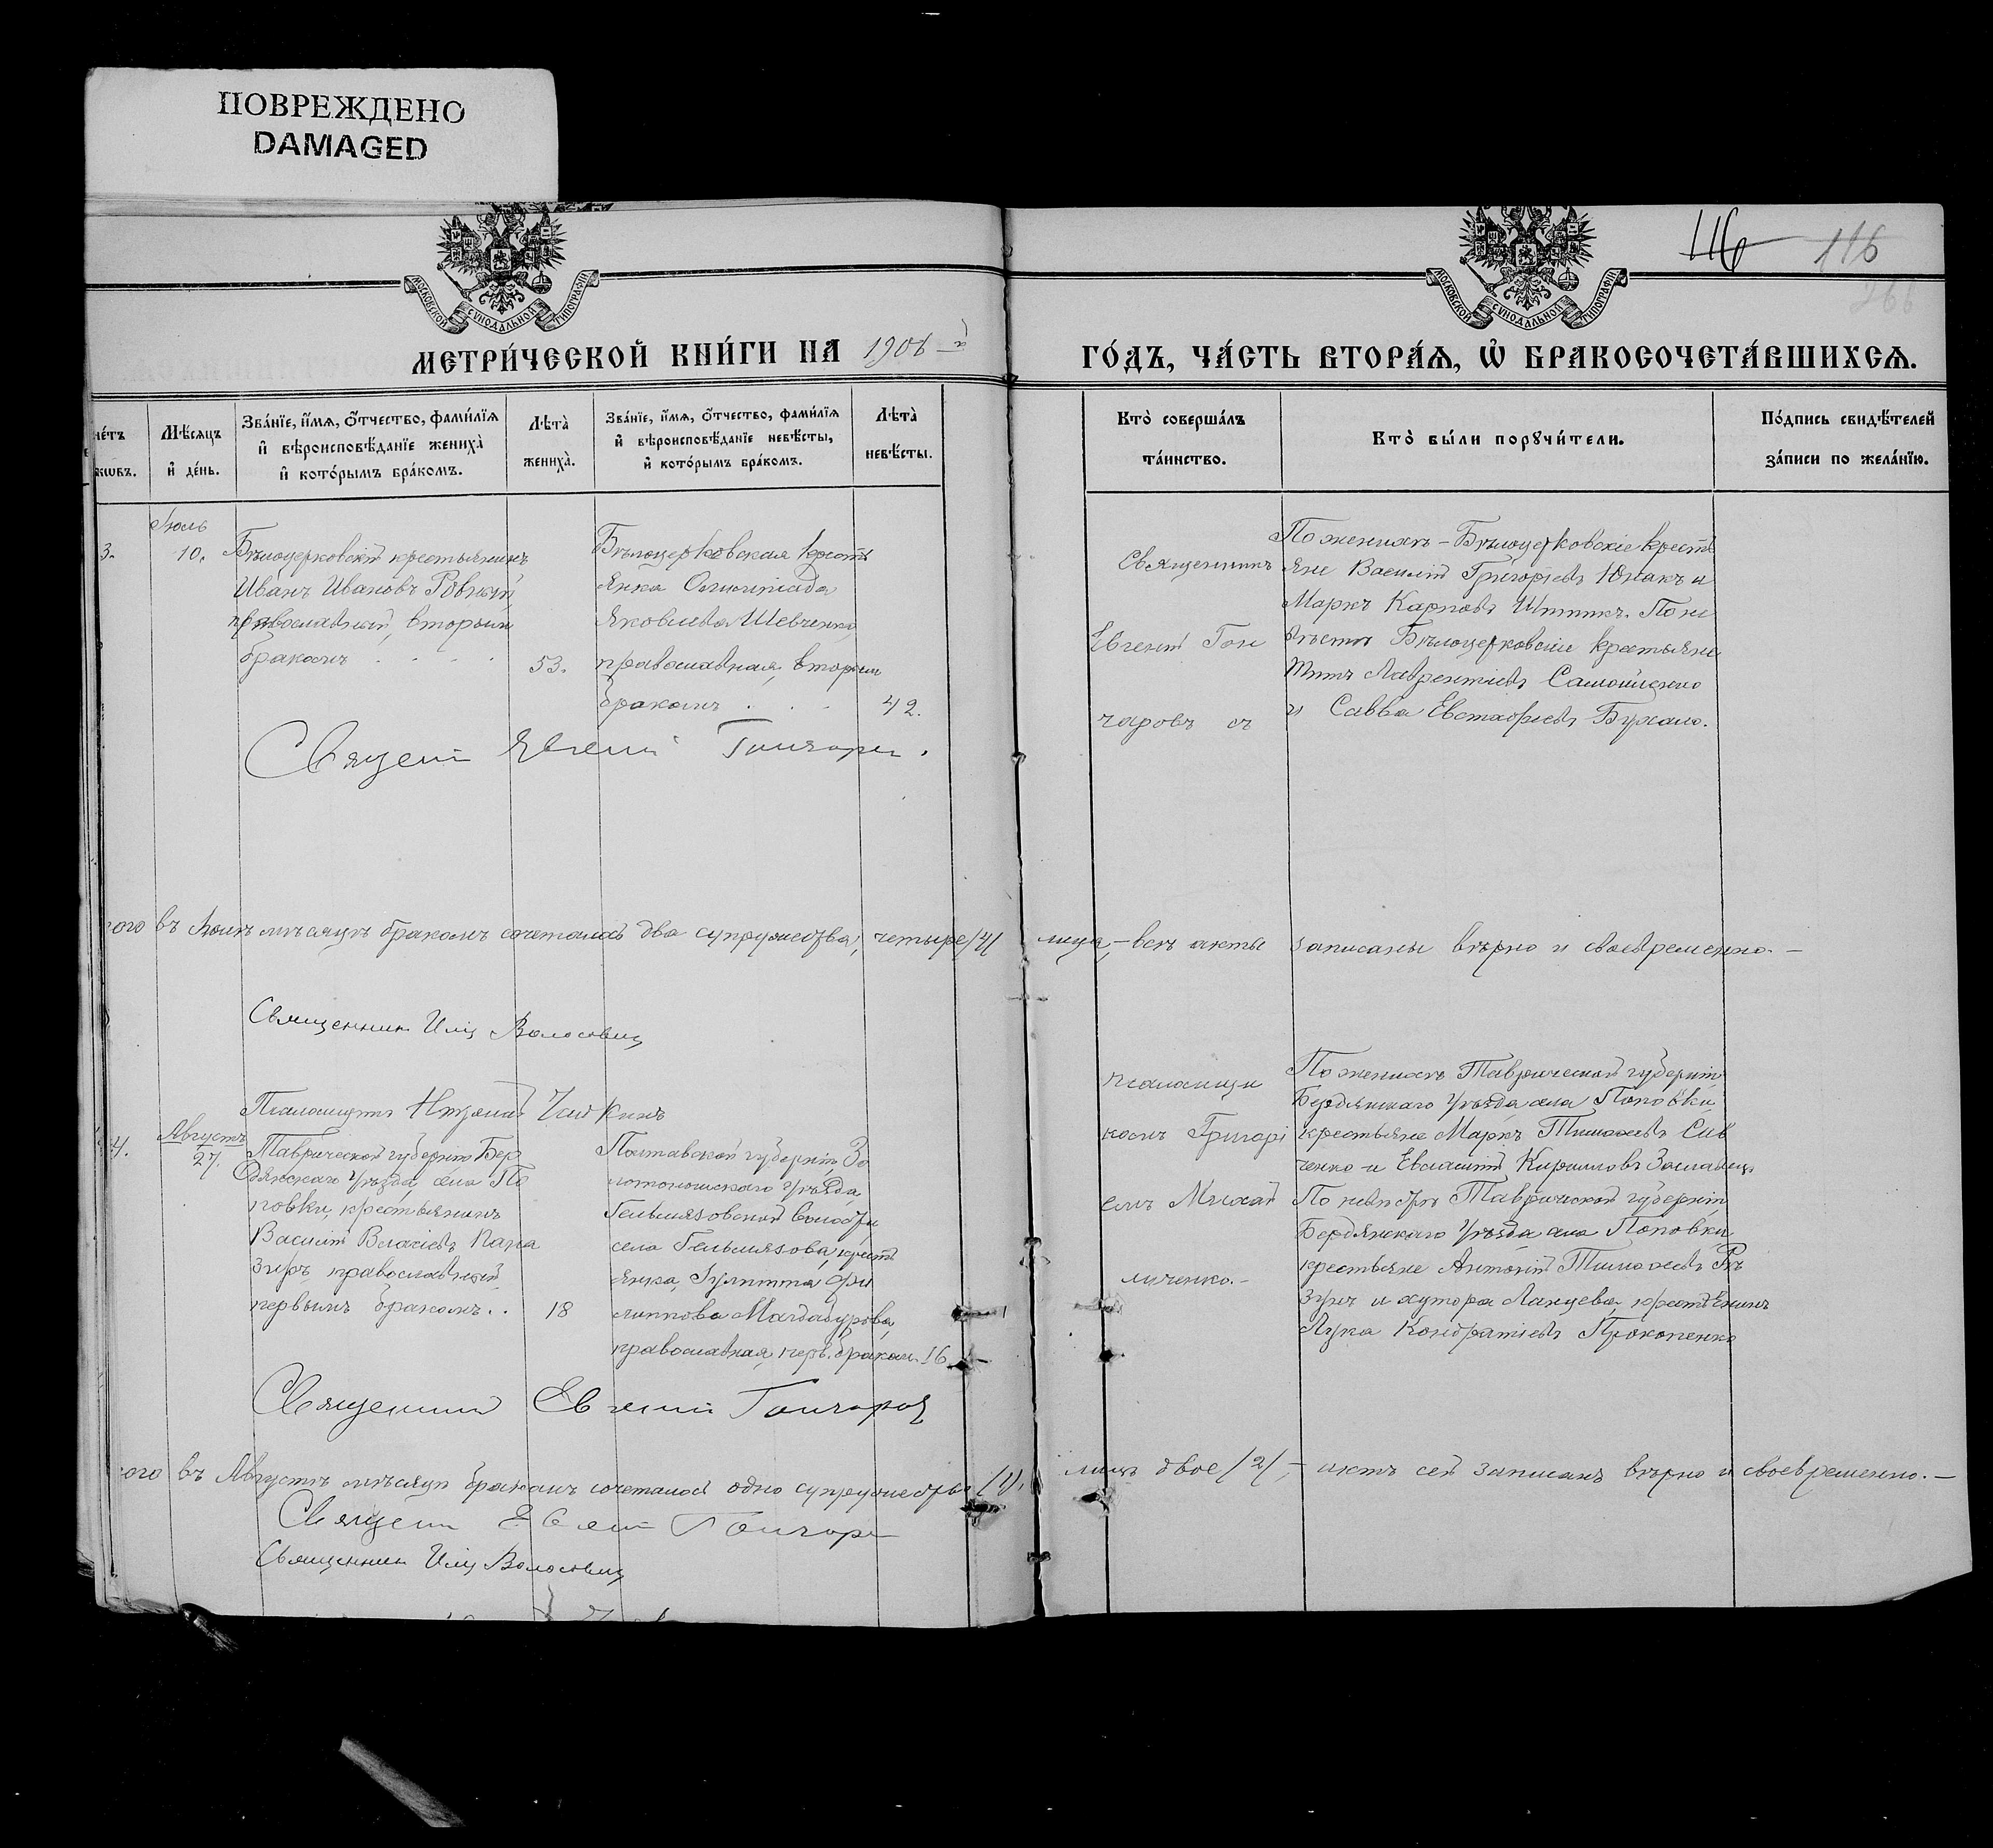 ПОВРЕЖДЕНО
DAMAGED
МОСКОВСКОЙ СѴНОДАЛЬНОЙ ТИПОГРАФІИ
МОСКОВСКОЙ СѴНОДАЛЬНОЙ ТИПОГРАФІИ
116 116
МЕТРИ́ЧЕСКОЙ КНИ́ГИ НА 1906-й
ГО́ДЪ, ЧА́СТЬ ВТОРА́Я, Ѡ БРАКОСОЧЕТА́ВШИХСЯ.
Мѣ́сяцъ
и де́нь.
Зва́нїе, и́мя, о́тчество, фами́лїя
и вѣроисповѣ́данїе жениха̀
и кото́рымъ бра́комъ.
Лѣта̀
жениха̀.
Зва́нїе, и́мя, о́тчество, фами́лїя
и вѣроисповѣ́данїе невѣ́сты,
и кото́рымъ бра́комъ.
Лѣта̀
невѣ́сты.
Кто̀ соверша́лъ
та́инство.
Кто̀ бы́ли порꙋчи́тели.
По́дпись свидѣ́телей
за́писи по жела́нїю.
3.
Іюль
10.
Бѣлоцерковскій крестьянинъ
Иванъ Ивановъ Ровный,
православный, вторымъ
бракомъ . . . .
53.
Бѣлоцерковская крестъ
янка Олимпіада
Яковлева Шевченко,
православная, вторым
бракомъ . . .
42.
Священникъ
Евгеній Гон
чаровъ съ
По женихѣ - Бѣлоцерковскіе крестъ
яне Василій Григорьевъ Юнакъ и
Маркъ Карповъ Шпинъ. По не
вѣстѣ Бѣлоцерковскіе крестьяне
Титъ Лаврентіевъ Самойленко
и Савва Евстафіевъ Бухало.
Священ Евгеній Гончаров.
въ Іюлѣ мѣсяцѣ бракомъ сочеталось два супружества, четыре /4/
лица, - всѣ акты записаны вѣрно и своевременно. -
Священник Илія Волосевич
Псаломщикъ
4.
Августъ
27.
Таврической губерніи Бер
дянскаго уѣзда, села По
повки, крестьянинъ
Василій Власіевъ
православный
первымъ бракомъ..
18
Полтавской губерніи Зо
лотоношскаго уѣзда,
Гельмязовской волости
села Гельмязова, крест
янка, Іулитта Фи
липпова Магдабурова,
православная, перв. браком. 16
псаломщи
комъ Григорі
емъ Михай
личенко. -
По женихѣ Таврической губерніи
Бердянскаго уѣзда села Поповки
крестьяне Маркъ Тимоѳеевъ Сав
ченко и Евлампій Кирилловъ
По невѣстѣ Таврической губерніи
Бердянскаго уѣзда села Поповки
крестьяне Антоній Тимоѳеевъ
и хутора Ланцева, крестьянинъ
Лука Кондратіевъ Прокопенко
Священник Евгений Гончаров
въ Августѣ мѣсяцѣ бракомъ сочеталось одно супружество /1/,
лицъ двое /2/, - актъ сей записанъ вѣрно и своевременно. -
Священ Евгеній Гончаров
Священник Илія Волосевич